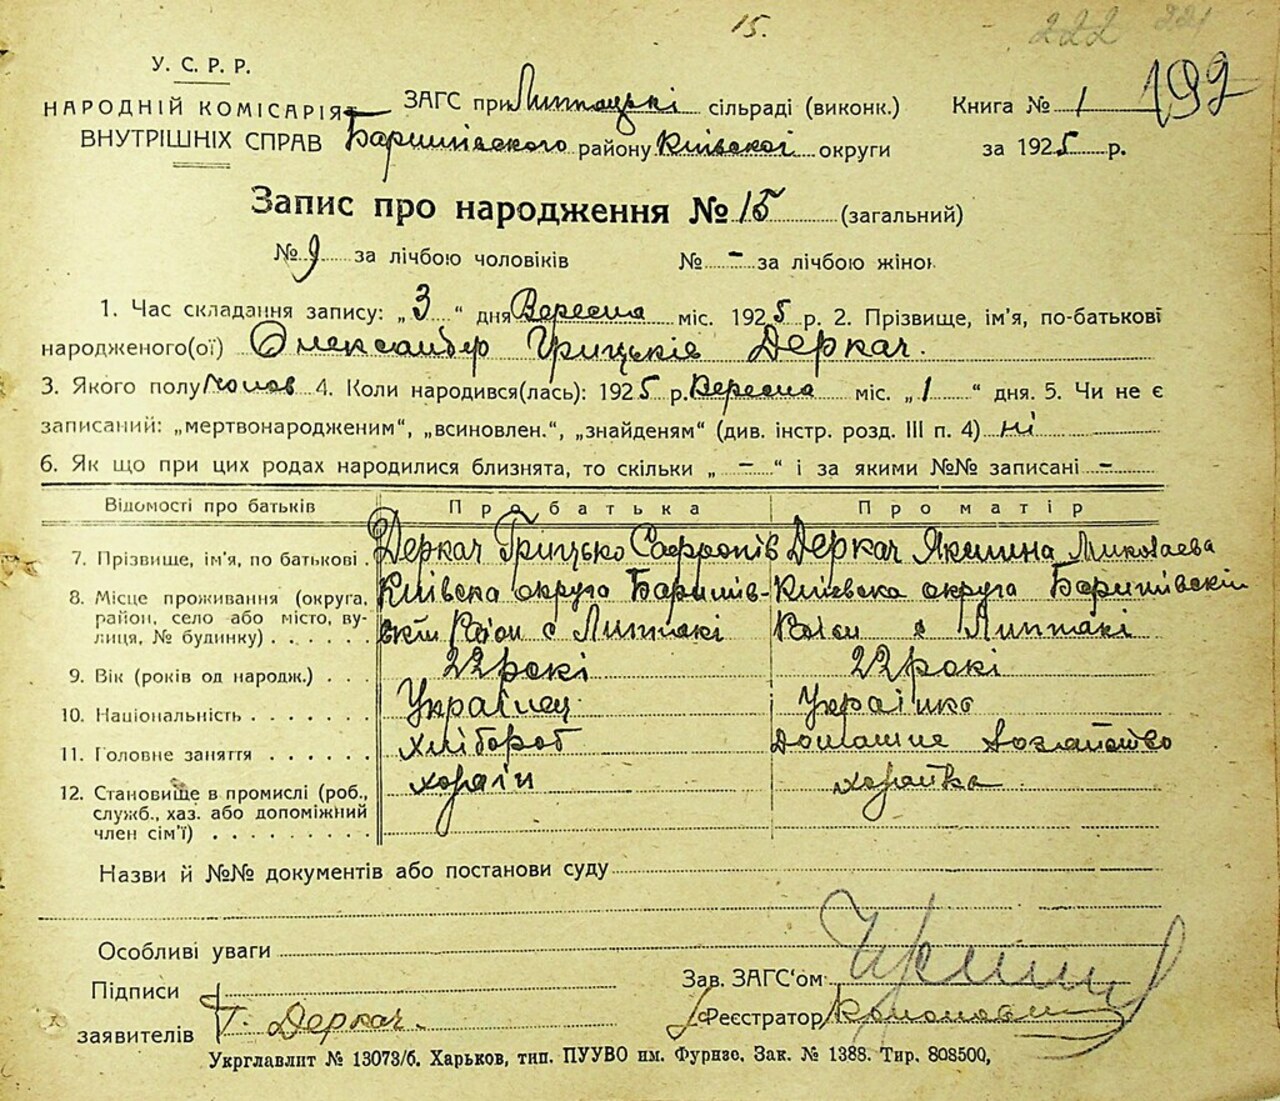 15.
222 221
У. С. Р. Р.
НАРОДНІЙ КОМІСАРІЯТ
ВНУТРІШНІХ СПРАВ
ЗАГС при сільраді (виконк.)
Баришівського району Київскої округи
Книга № 1
за 1925 р.
192
Запис про народження № 15 (загальний)
№ 9 за лічбою чоловіків № - за лічбою жінок
1. Час складання запису: „ 3 “ дня Вересня міс. 1925 р. 2. Прізвище, ім'я, по-батькові
народженого(ої) Олександер Грицьків Деркач.
3. Якого полу чолов 4. Коли народився(лась): 1925 р. Вересня міс. „ 1 “ дня. 5. Чи не є
записаний: „мертвонародженим“, „всиновлен.“, „знайденям“ (див. інстр. розд. III п. 4) ні
6. Як що при цих родах народилися близнята, то скільки „ - “ і за якими №№ записані -
Відомості про батьків Про батька Про матір
7. Прізвище, ім'я, по батькові . Деркач Грицько Сафронів Деркач Якилина Миколаева
8. Місце проживання (округа, район, село або місто, вулиця, № будинку) . . . . . Київска округа Баришів- Київска округа Баришівскій
скій Район с Липтакі Район с Липтакі
9. Вік (років од народж.) . . . 22 рокі 22 рокі
10. Національність . . . . . . . Українец Українка
11. Головне заняття . . . . . . хлібороб домашне хозайство
12. Становище в промислі (роб., служб., хаз. або допоміжний член сім'ї) . . . . . . . . хозаін хозайка
Назви й №№ документів або постанови суду
Особливі уваги
Підписи
заявителів Г. Деркач.
Зав. ЗАГС'ом
Реєстратор
Укрглавлит № 13073/б. Харьков, тип. ПУУВО им. Фурнзе, Зак. № 1388. Тир. 808500,